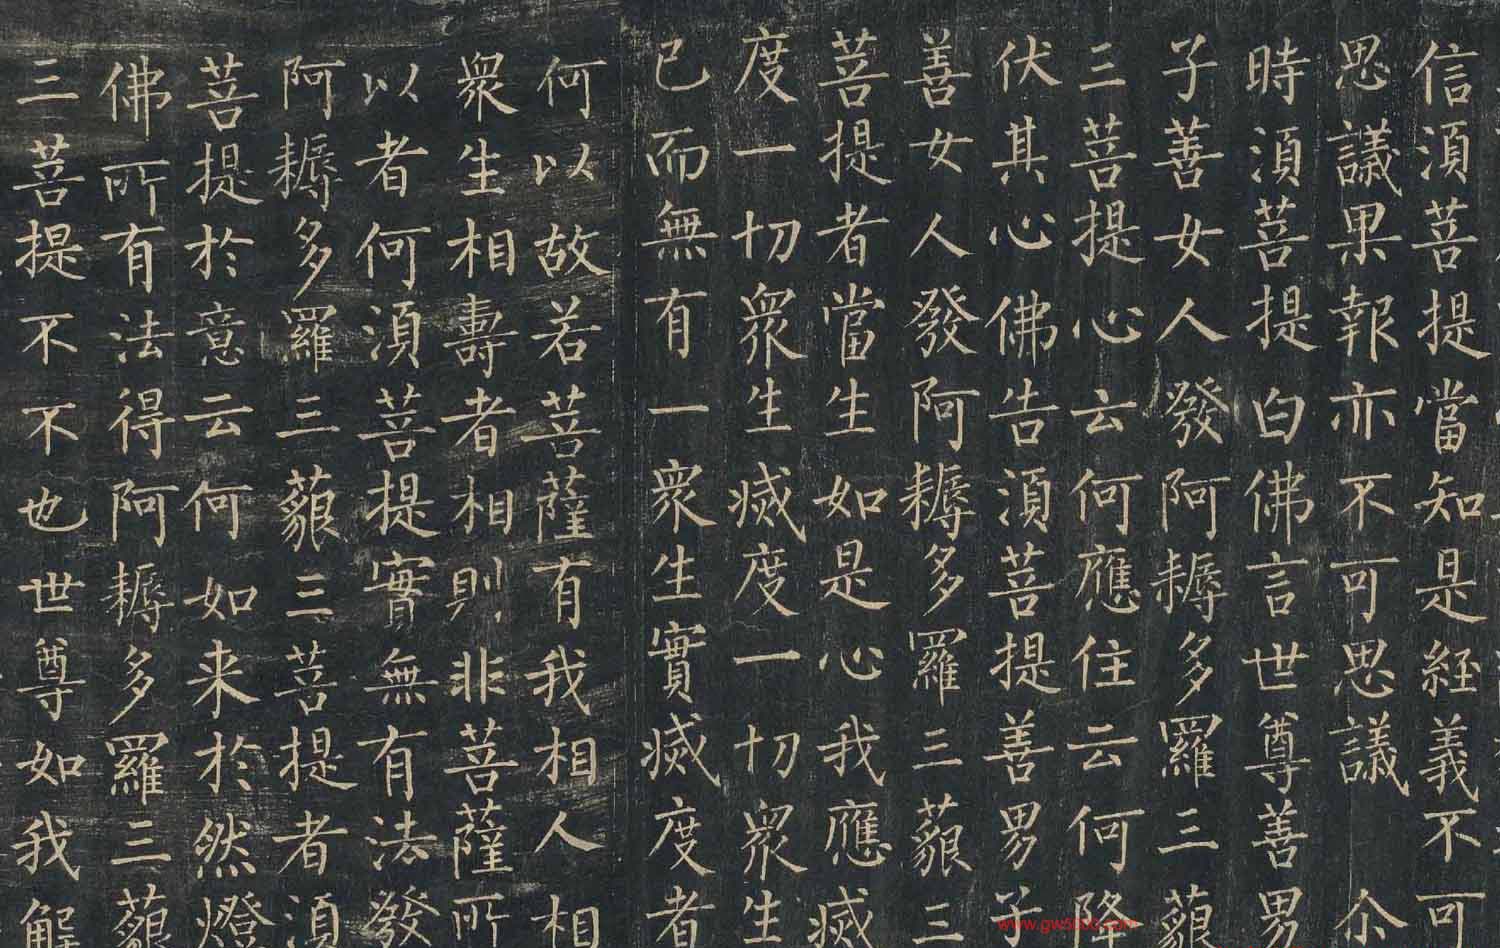 信湏菩提當知是経義不可
思議果報亦不可思議 尒
時湏菩提白佛言世尊善男
子善女人發阿耨多羅三藐
三菩提心云何應住云何降
伏其心佛告湏菩提善男子
善女人發阿耨多羅三藐三
菩提者當生如是心我應滅
度一切衆生滅度一切衆生
已而無有一衆生實滅度者
何以故若菩薩有我相人相
衆生相壽者相則非菩薩所
以者何湏菩提實無有法發
阿耨多羅三藐三菩提者湏
菩提於意云何如来於然燈
佛所有法得阿耨多羅三藐
三菩提不不也世尊如我解